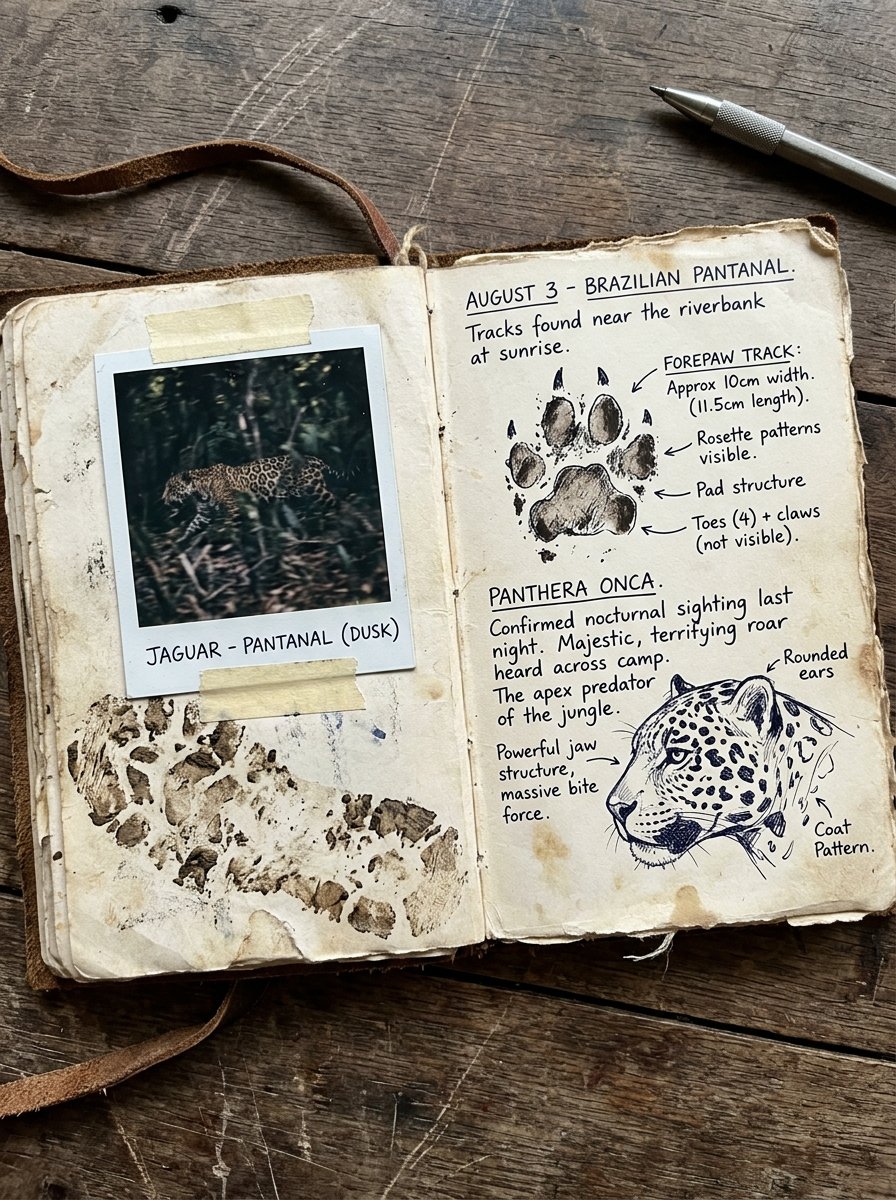 JAGUAR – PANTANAL (DUSK)
AUGUST 3 – BRAZILIAN PANTANAL.
Tracks found near the riverbank
at sunrise.
FOREPAW TRACK:
Approx 10cm width.
(11.5cm length).
Rosette patterns
visible.
Pad structure
Toes (4) + claws
(not visible).
PANTHERA ONCA.
Confirmed nocturnal sighting last
night. Majestic, terrifying roar
heard across camp.
The apex predator
of the jungle.
Rounded
ears
Powerful jaw
structure,
massive bite
force.
Coat
Pattern.